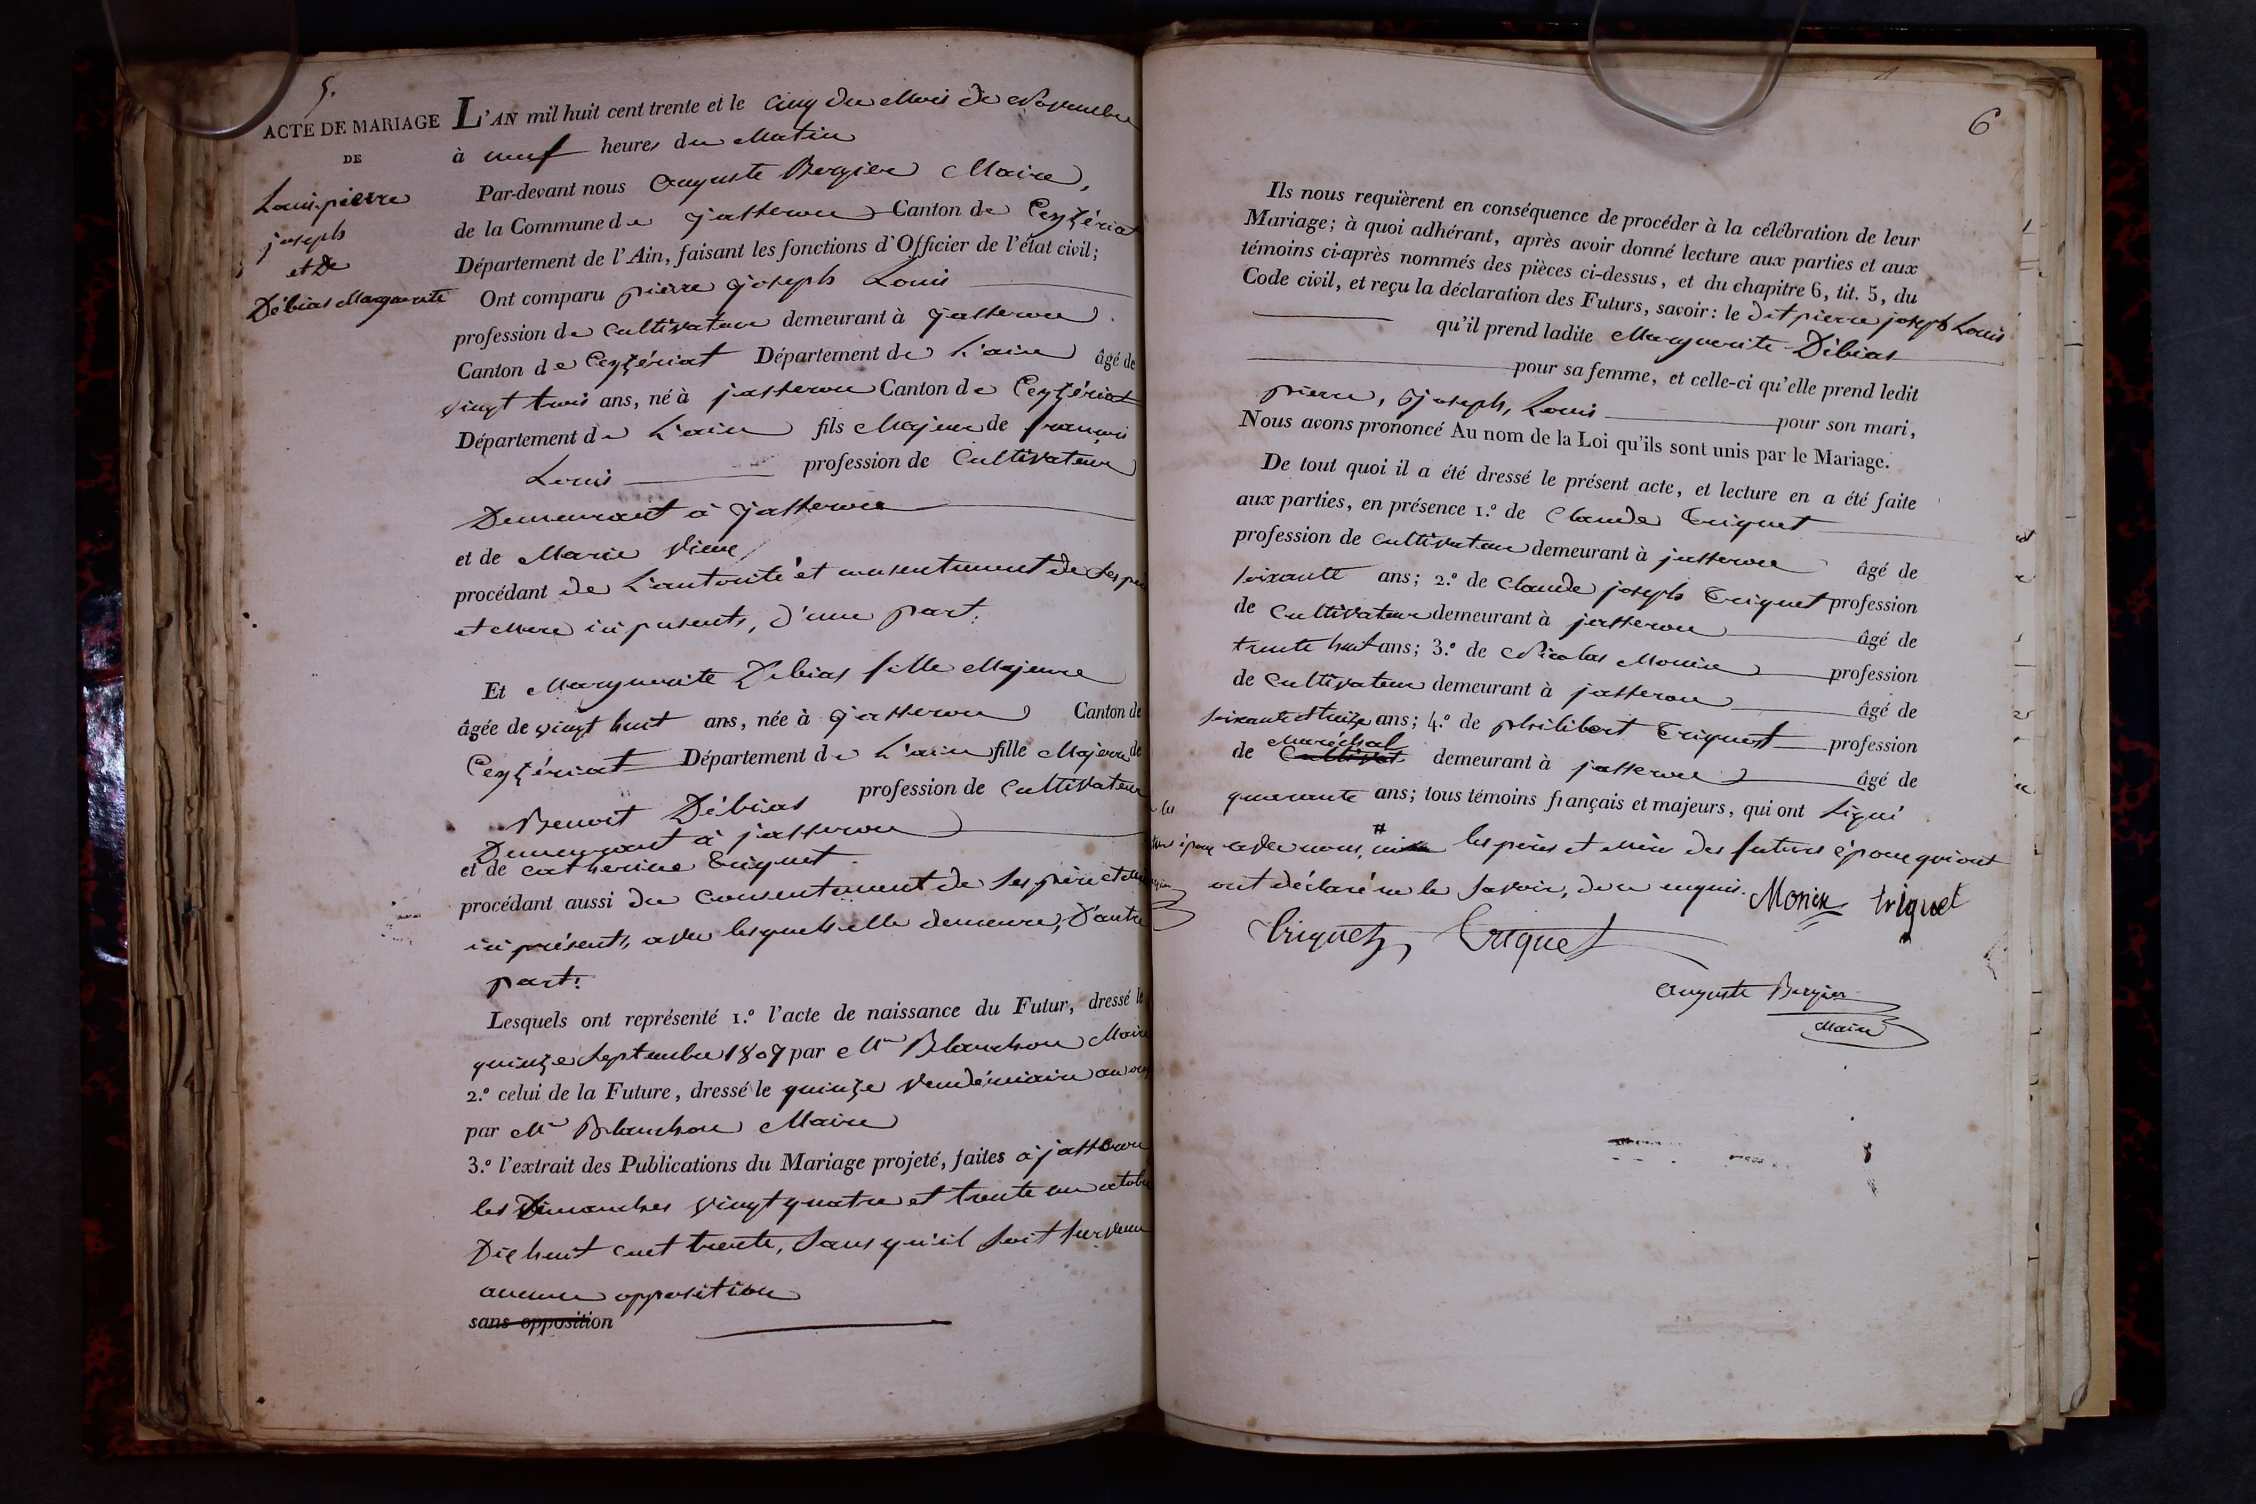 5.
ACTE DE MARIAGE
DE
Louis pierre
joseph
et de
Débias Marguerite
L'AN mil huit cent trente et le cinq du Mois de Novembre
à neuf heures du Matin
Par-devant nous Auguste Bergier Maire,
de la Commune de jasseron Canton de Ceyzériat
Département de l'Ain, faisant les fonctions d'Officier de l'état civil;
Ont comparu pierre joseph Louis
profession de cultivateur demeurant à jasseron
Canton de Ceyzériat Département de L'ain âgé de
vingt trois ans, né à jasseron Canton de Ceyzériat
Département de L'ain fils Majeur de françois
Louis profession de Cultivateur
Demeurant à jasseron
et de Marie
procédant de L'autorité et consentement de ses père
et Mere ici présents, d'une part.
Et Marguerite Débias fille Majeure
âgée de vingt huit ans, née à jasseron Canton de
Ceyzériat Département de L'ain fille Majeure de
Benoit Débias profession de Cultivateur
Demeurant à jasseron
et de Catherine Triquet
procédant aussi du consentement de ses père et mere
ici présents, avec lesquels elle demeure, D'autre
part.
Lesquels ont représenté 1.º l'acte de naissance du Futur, dressé le
quinze septembre 1807 par Mr Blanchon Maire
2.º celui de la Future, dressé le quinze vendémiaire an onze
par Mr Blanchon Maire
3.º l'extrait des Publications du Mariage projeté, faites à jasseron
les Dimanches vingt quatre et trente un octobre
Dix huit cent trente, sans qu'il soit survenu
aucune opposition
sans opposition
6
Ils nous requièrent en conséquence de procéder à la célébration de leur
Mariage; à quoi adhérant, après avoir donné lecture aux parties et aux
témoins ci-après nommés des pièces ci-dessus, et du chapitre 6, tit. 5, du
Code civil, et reçu la déclaration des Futurs, savoir: le dit pierre joseph Louis
qu'il prend ladite Marguerite Débias
pour sa femme, et celle-ci qu'elle prend ledit
pierre, joseph, Louis pour son mari,
Nous avons prononcé Au nom de la Loi qu'ils sont unis par le Mariage.
De tout quoi il a été dressé le présent acte, et lecture en a été faite
aux parties, en présence 1.º de Claude Triquet
profession de cultivateur demeurant à jasseron âgé de
soixante ans; 2.º de Claude joseph Triquet profession
de Cultivateur demeurant à jasseron âgé de
trente huit ans; 3.º de Nicolas Monin profession
de Cultivateur demeurant à jasseron âgé de
soixante et treize ans; 4.º de philibert Triquet profession
de Cultivat. Maréchal demeurant à jasseron âgé de
quarante ans; tous témoins français et majeurs, qui ont signé
avec nous, # les pères et mère des futurs époux qui ont
ont déclaré ne le savoir, de ce enquis. Monin triquet
Triquet, Triquet
Auguste Bergier
Maire